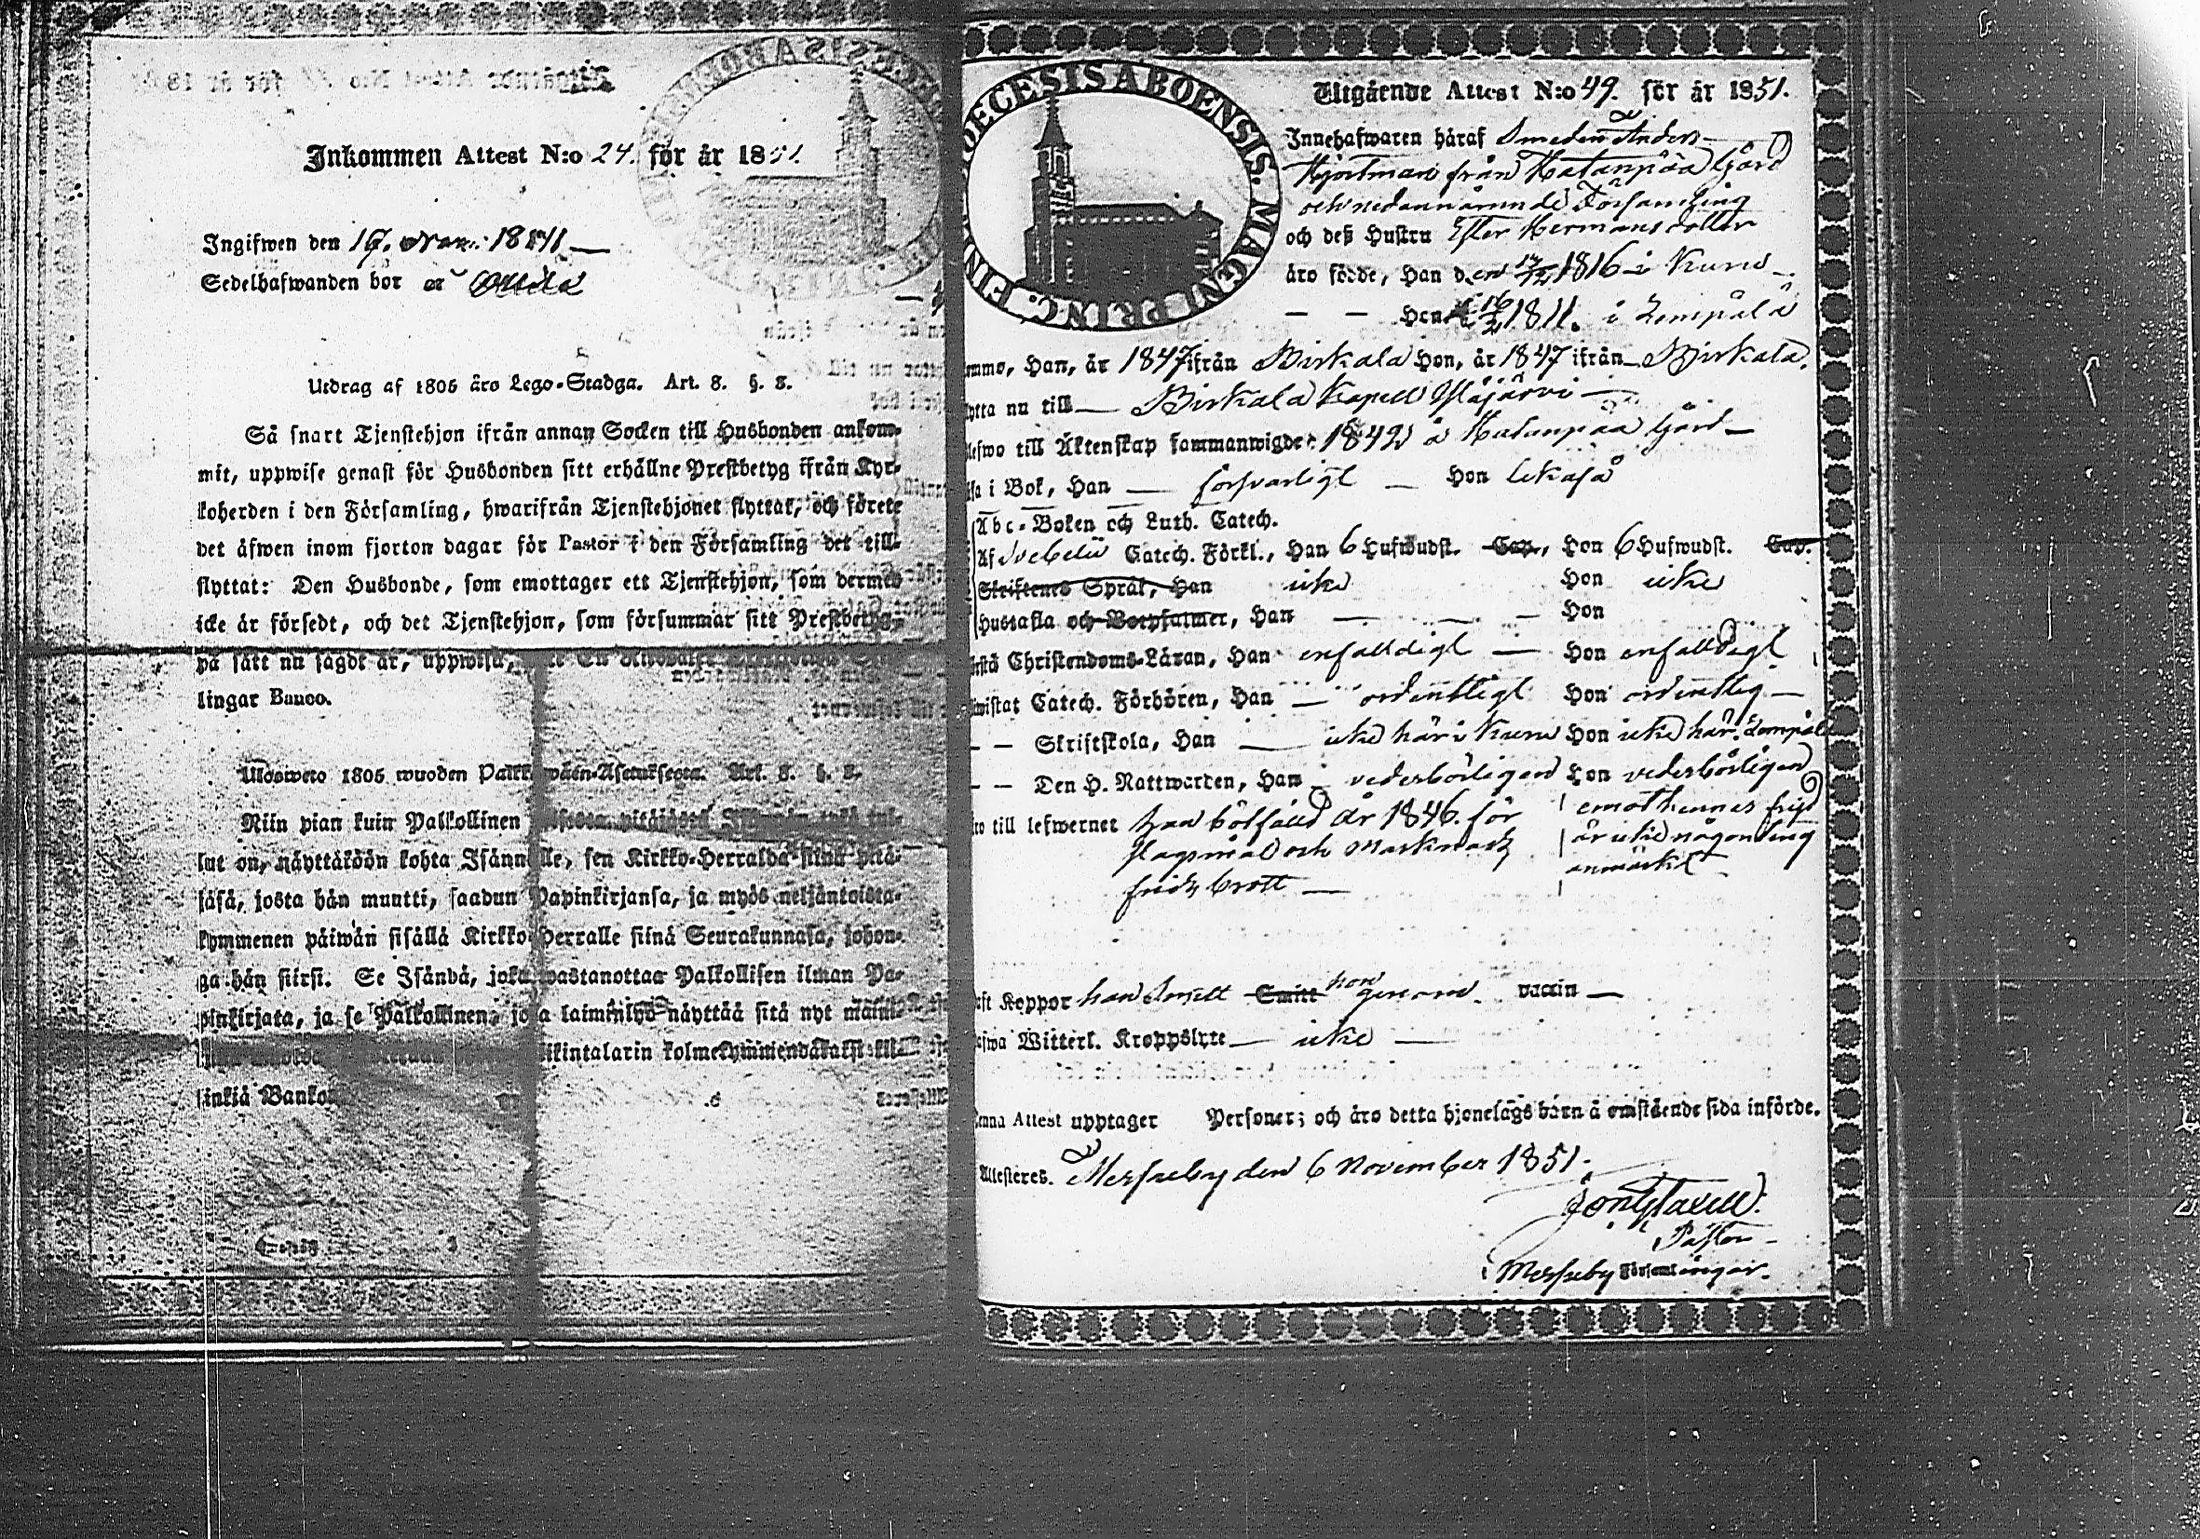 Inkommen Attest N:o 24. för år 1851.
Ingifwen den 17. Nov. 18
Sedelhafwanden bor
Utdrag af 1805 års Lego-Stadga. Art. 8. §. 8.
Så snart Tjenstehjon ifrån annan Socken till Husbonden ankom-
mit, uppwise genast för Husbonden sitt erhållne Prestbetyg ifrån Kyr-
koherden i den Församling, hwarifrån Tjenstehjonet flyttat, och förete
det äfwen inom fjorton dagar för Pastor i den Församling det till-
flyttat: Den Husbonde, som emottager ett Tjenstehjon, som dermed
icke är försedt, och det Tjenstehjon, som försummar sitt Prestbetyg,
på sätt nu sagdt är, uppwisa,
lingar Banco.
Ulosweto 1805 wuoden Palkkawäen-Asetuksesta. Art. 8. §. 8.
Niin pian kuin Palkollinen
lut on, näyttäköön kohta Isännälle, sen Kirkko-Herralda siinä pitä-
jäsä, josta hän muutti, saadun Papinkirjansa, ja myös neljäntoista-
kymmenen päiwän sisällä Kirkko-Herralle siinä Seurakunnasa, johon-
ga hän siirsi. Se Isändä, joka wastanottaa Palkollisen ilman Pa-
pinkirjata, ja se Palkollinen, joka laiminlyö näyttää sitä nyt
kolmekymmendäkaksi kil-
linkiä Bankos
FIN. DIOECESIS ABOENSIS. MAGNI PRINC.
Utgående Attest N:o 49. för år 1851.
Innehafwaren häraf Smeden Anders
Hjortman från Hatanpää Gård
och nedannämnde Församling
och deß Hustru Ester Hermansdotter
äro födde, Han den 1816 i Kuru
— — Hon 1811. i Lempälä
komne, Han, år 1847 ifrån Birkala Hon, år 1847 ifrån Birkala.
flytta nu till Birkala Kapell Ylöjärvi
blefwo till Äktenskap sammanwigde 1842 å Hatanpää Gård
läsa i Bok, Han försvarligt Hon likaså
Abc-Boken och Luth. Catech.
Af Svebelii Catech. Förkl., Han 6 Hufwudst. Cap., Hon 6 Hufwudst. Cap.
Skriftenes Språk, Han icke Hon icke
Hustafla och Botpsalmer, Han — — Hon
förstå Christendoms-Läran, Han enfaldigt — Hon enfaldigt
bewistat Catech. Förhören, Han — ordentligt Hon ordentlig
— — Skriftskola, Han icke här i Kuru Hon icke här i Lempälä
— — Den H. Nattwarden, Han vederbörligen Hon vederbörligen
äro till lefwernet han bötfäld år 1846. för
slagsmål och Marknads
frids brott —
emot hennes frejd
är icke någonting
anmärkt
haft Koppor han Smitt hon genom vaccin —
hafwa Witterl. Kroppslyte — icke —
Denna Attest upptager Personer; och äro detta hjonelags barn å omstående sida införde.
Attesteres. Messuby den 6 November 1851.
Pastor
i Messuby Församlingar.